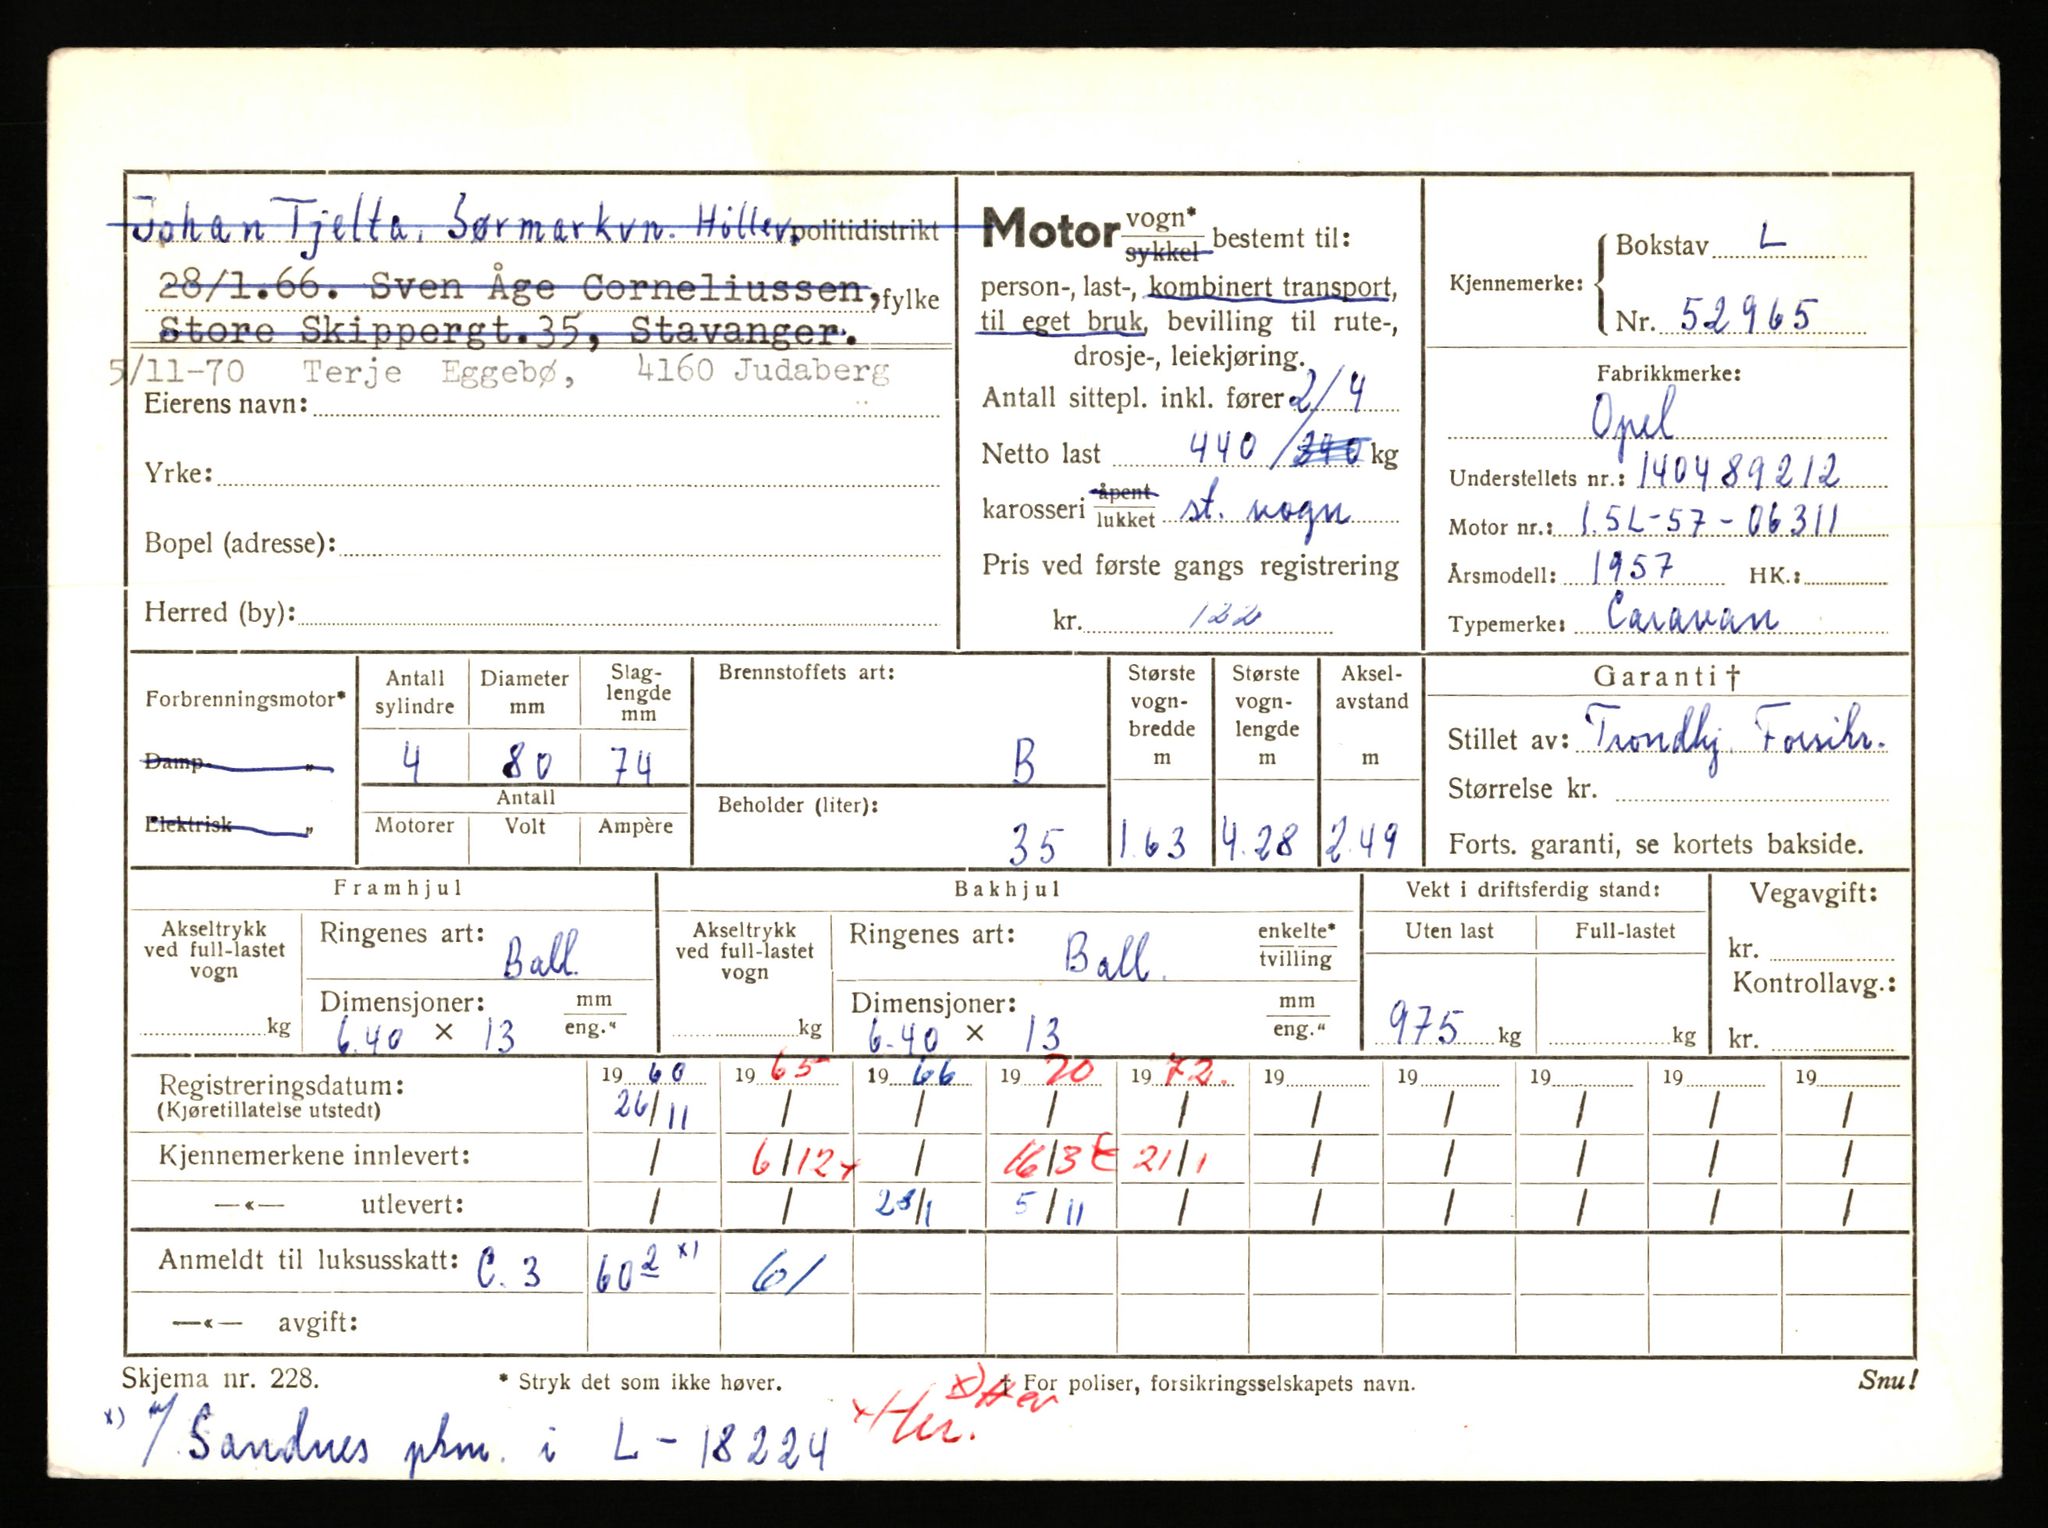 Johan Tjelta, Sørmarkvn. Hillev. politidistrikt
28/1.66. Sven Åge Corneliussen, fylke
Store Skippergt.35, Stavanger.
5/11-70 Terje Eggebø, 4160 Judaberg
Eierens navn:
Yrke:
Bopel (adresse):
Herred (by):
Motor vogn* sykkel bestemt til:
person-, last-, kombinert transport,
til eget bruk, bevilling til rute-,
drosje-, leiekjøring.
Antall sittepl. inkl. fører 2/4
Netto last 440 / 340 kg
karosseri åpent lukket st. vogn
Pris ved første gangs registrering
kr. 122
Kjennemerke: Bokstav L
Nr. 52965
Fabrikkmerke:
Opel
Understellets nr.: 140489212
Motor nr.: 1.5L-57-06311
Årsmodell: 1957 HK.:
Typemerke: Caravan
Forbrenningsmotor*
Damp- "
Elektrisk "
Antall sylindre Diameter mm Slaglengde mm
4 80 74
Antall
Motorer Volt Ampère
Brennstoffets art:
B
Beholder (liter):
35
Største vognbredde m
1.63
Største vognlengde m
4.28
Akselavstand m
2.49
Garanti †
Stillet av: Trondhj. Forsikr.
Størrelse kr.
Forts. garanti, se kortets bakside.
Framhjul
Akseltrykk ved full-lastet vogn
kg
Ringenes art: Ball.
Dimensjoner: mm eng."
6.40 × 13
Bakhjul
Akseltrykk ved full-lastet vogn
kg
Ringenes art: Ball. enkelte* tvilling
Dimensjoner: mm eng."
6.40 × 13
Vekt i driftsferdig stand:
Uten last Full-lastet
975 kg kg
Vegavgift:
kr.
Kontrollavg.:
kr.
Registreringsdatum: 19 60 19 65 19 66 19 70 19 72. 19 19 19 19 19
(Kjøretillatelse utstedt) 26/11 / / / / / / / / /
Kjennemerkene innlevert: / 6/12 x / 16/3 21/1 / / / / /
—«— utlevert: / / 28/1 5/11 / / / / / /
Anmeldt til luksusskatt: C. 3 60 2 x) 61
—«— avgift:
Skjema nr. 228. * Stryk det som ikke høver. † For poliser, forsikringsselskapets navn. Snu!
x) Sandnes pkm. i L - 18224